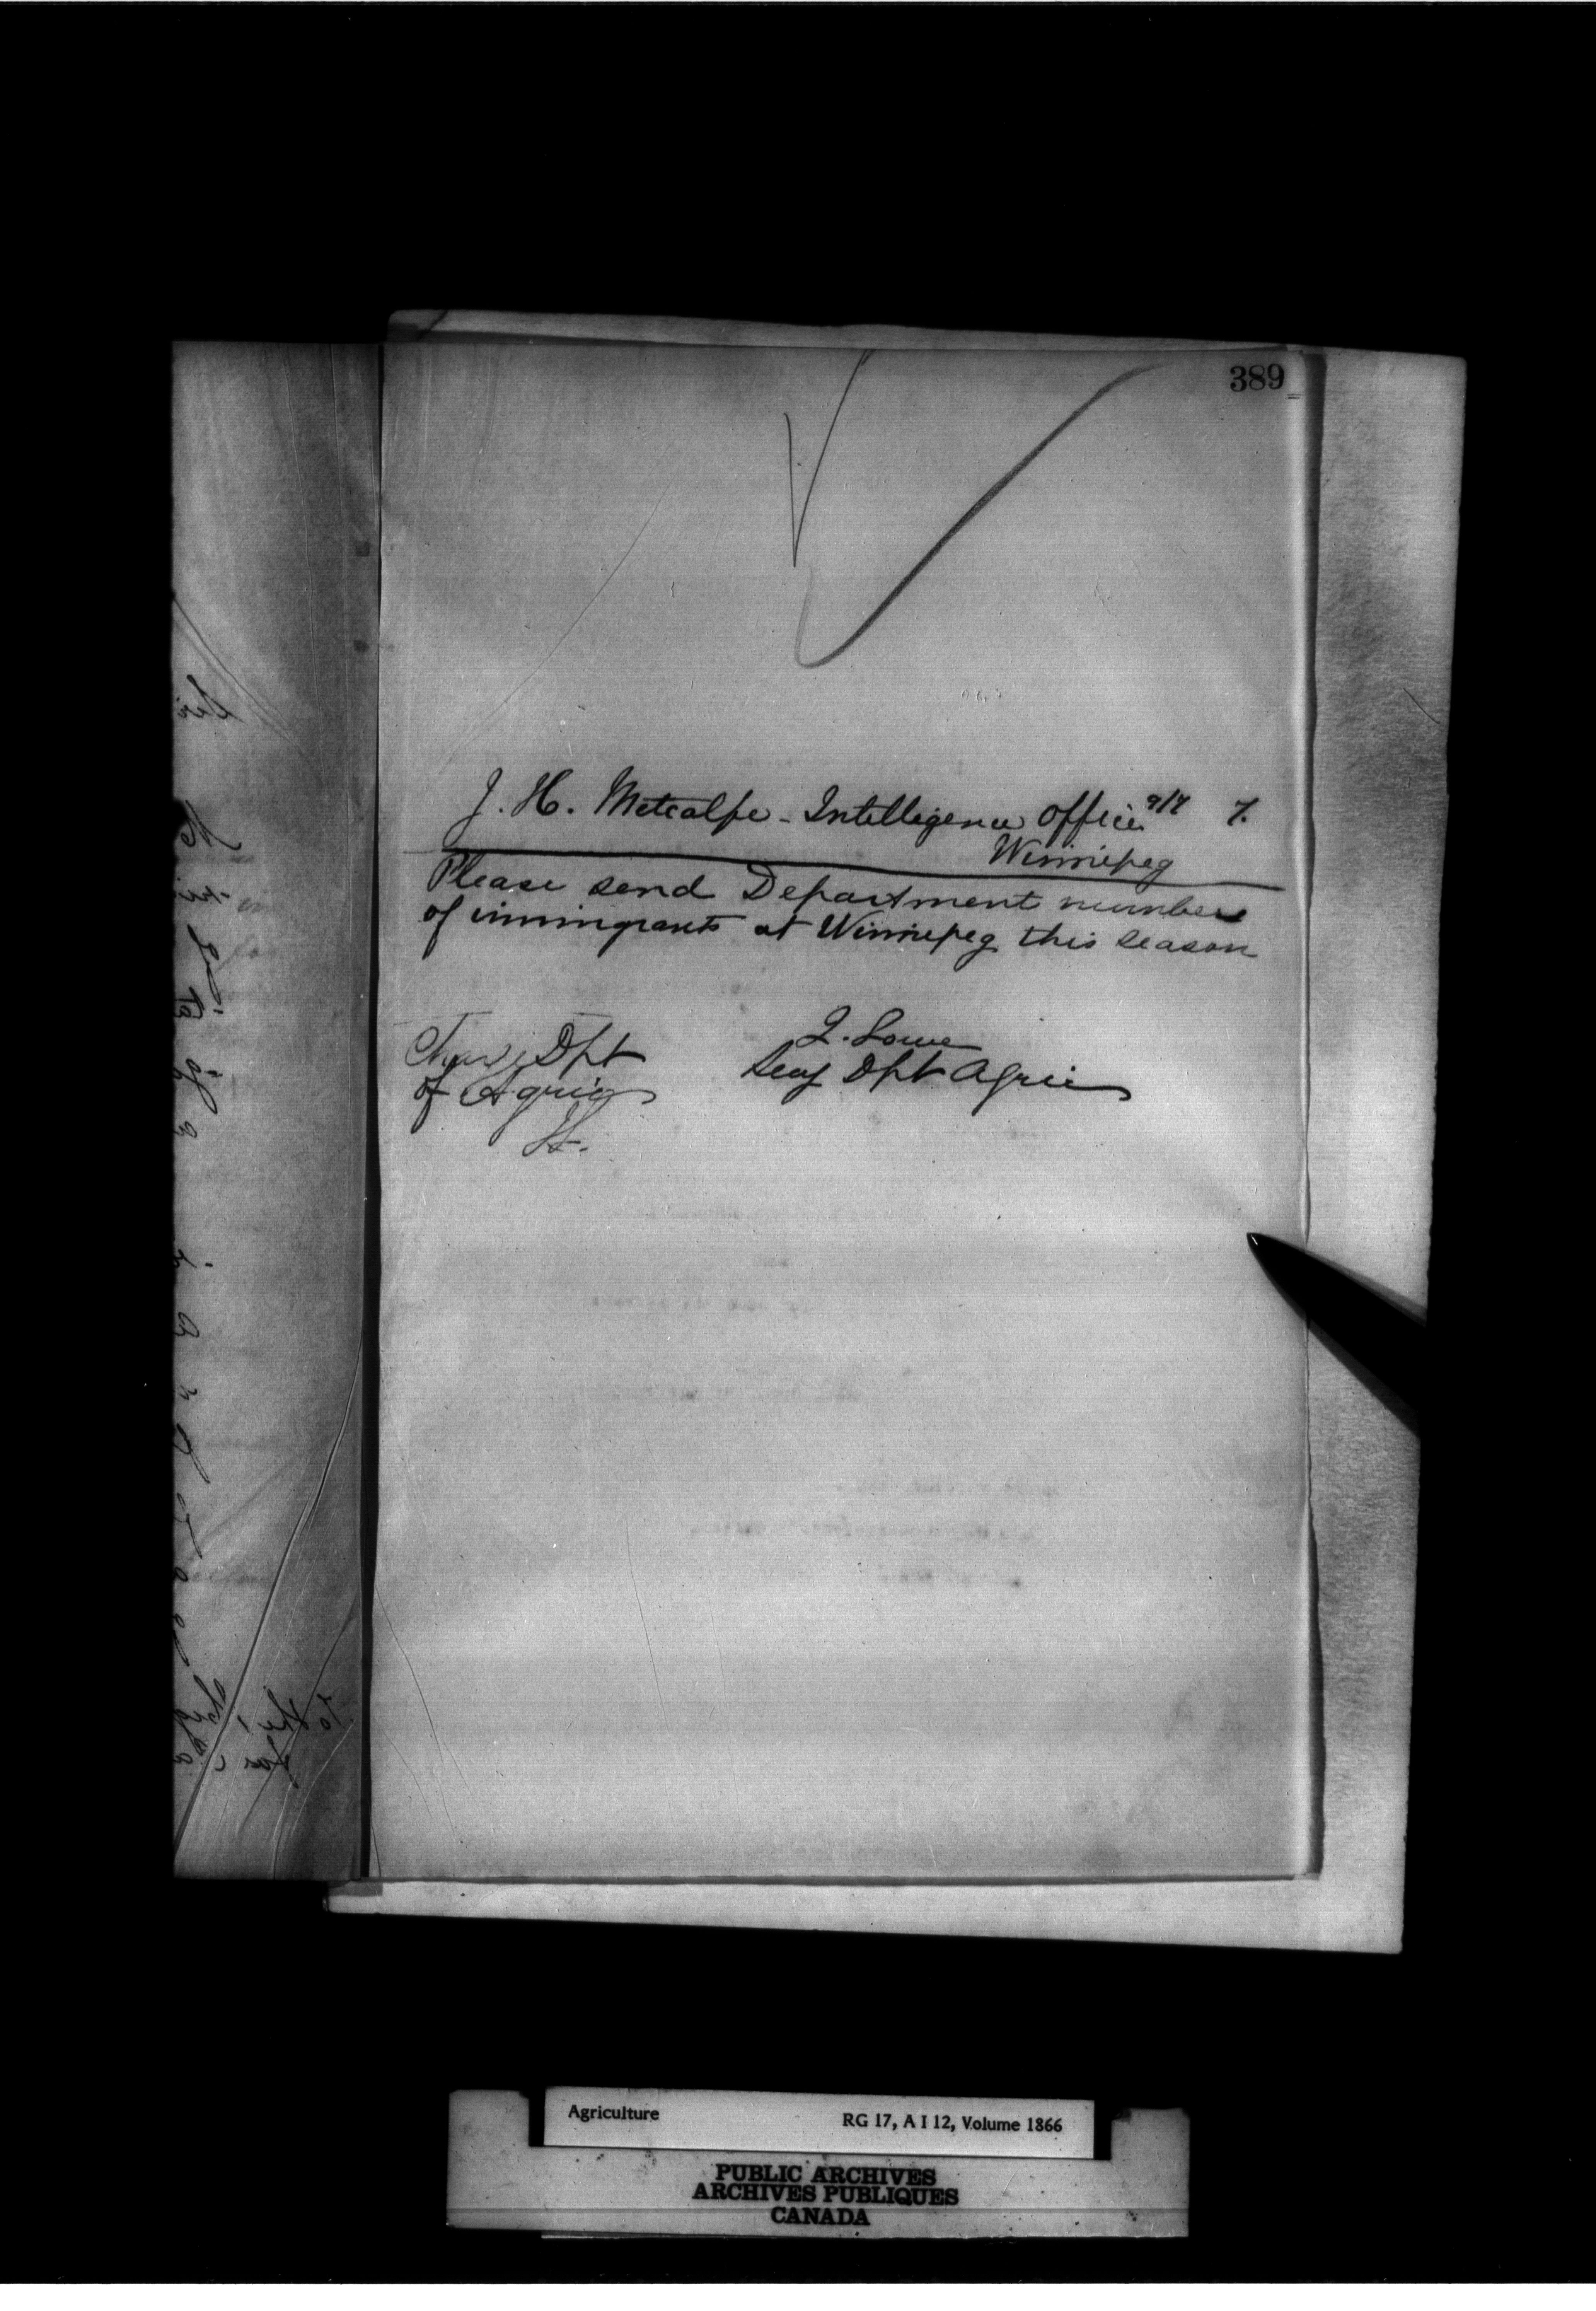 389
J. H. Metcalfe - Intelligence Office 9/7 7.
Winnipeg
Please send Department number
of immigrants at Winnipeg this season
J. Lowe
Secy Dpt Agric
Charge Dpt
of Agric
Agriculture RG 17, A I 12, Volume 1866
PUBLIC ARCHIVES
ARCHIVES PUBLIQUES
CANADA